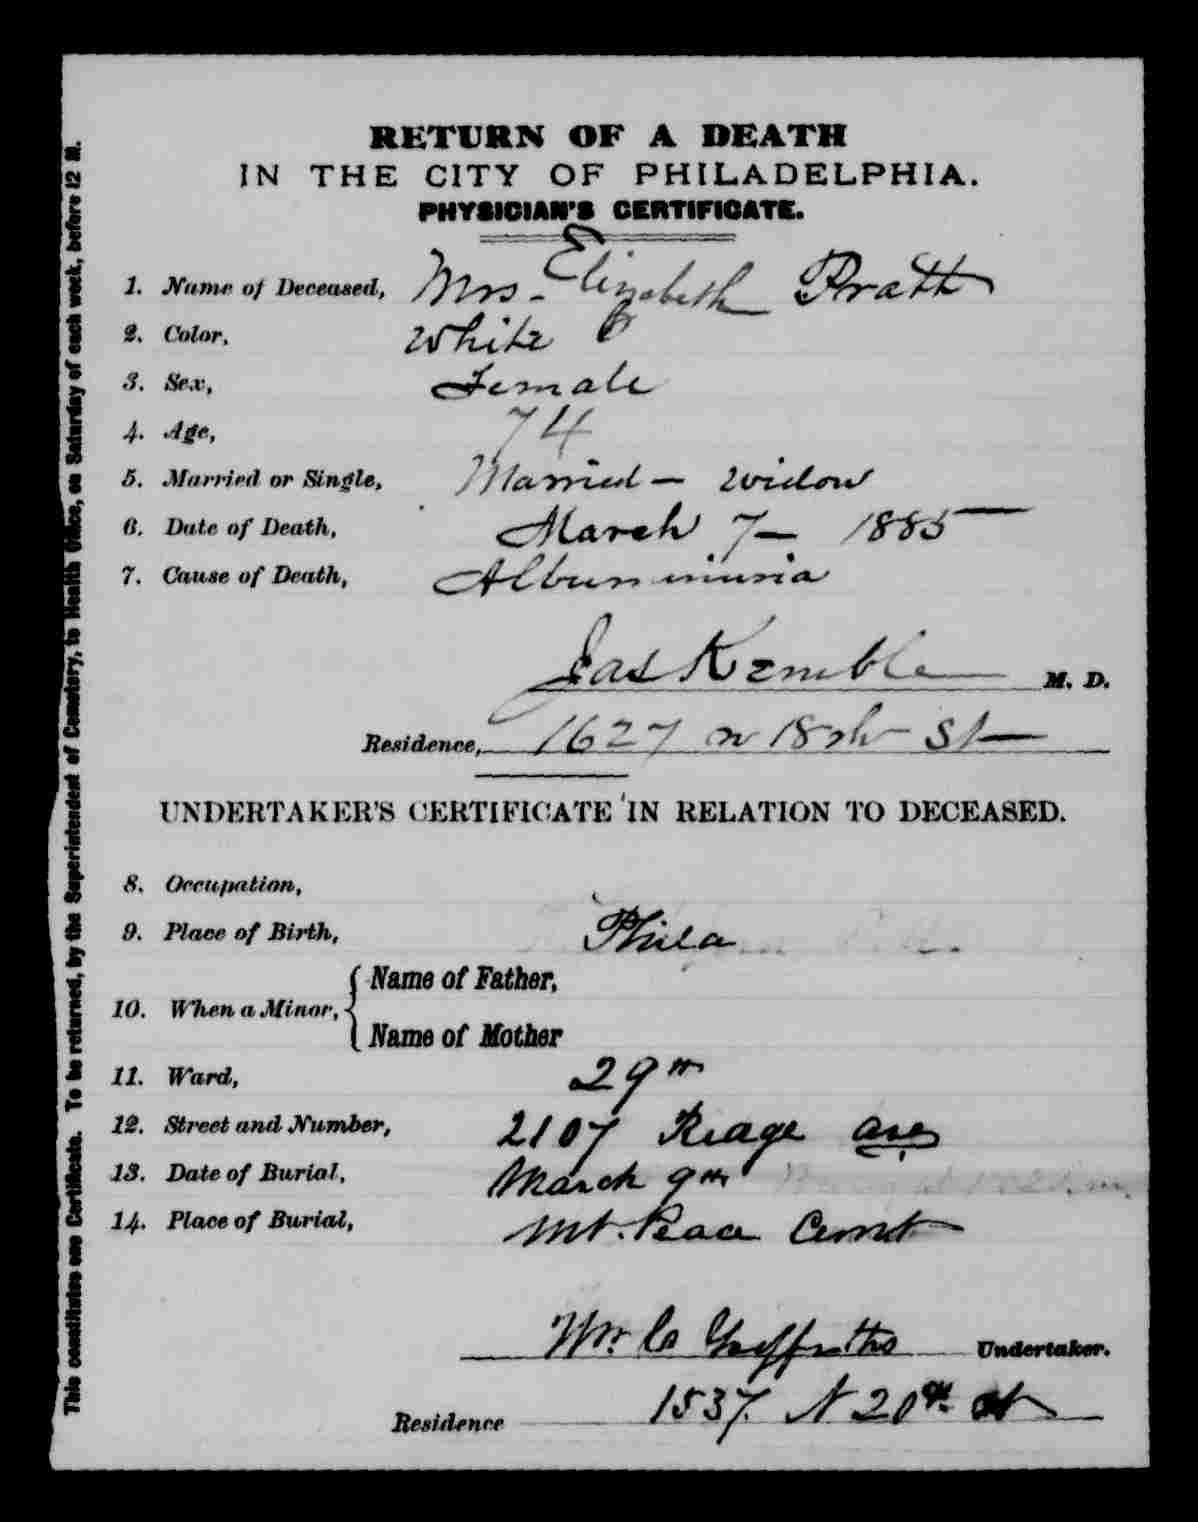 RETURN OF A DEATH
IN THE CITY OF PHILADELPHIA.
PHYSICIAN'S CERTIFICATE.
1. Name of Deceased, Mrs. Elizabeth Pratt
2. Color, White
3. Sex, Female
4. Age, 74
5. Married or Single, Married - Widow
6. Date of Death, March 7 - 1885
7. Cause of Death, Albuminuria
Jas Kemble M. D.
Residence, 1627 N 18th St
UNDERTAKER'S CERTIFICATE IN RELATION TO DECEASED.
8. Occupation,
9. Place of Birth, Phila
10. When a Minor, { Name of Father,
Name of Mother
11. Ward, 29th
12. Street and Number, 2107 Ridge ave
13. Date of Burial, March 9th
14. Place of Burial, Mt. Peace Cemt
Wm. C. Griffiths Undertaker.
Residence 1537. N 20th st
This constitutes one Certificate. To be returned, by the Superintendent of Cemetery, to Health Office, on Saturday of each week, before 12 M.